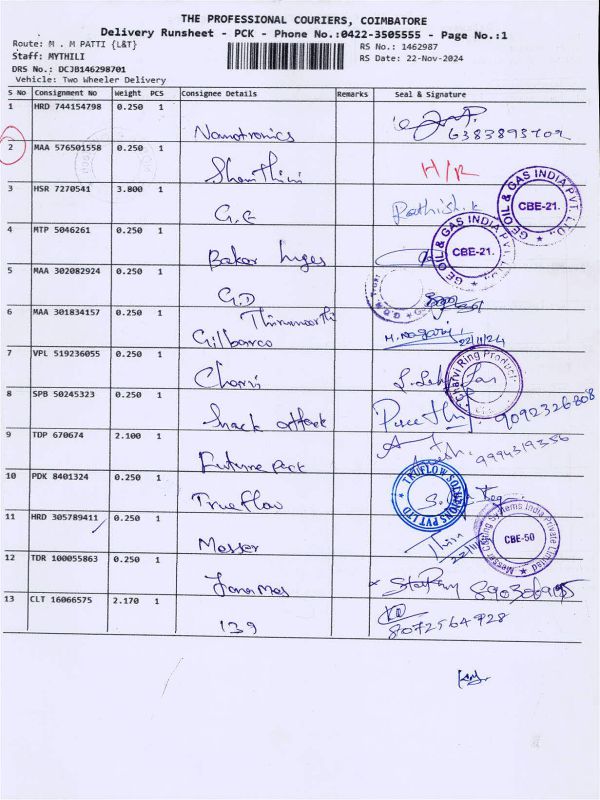 THE PROFESSIONAL COURIERS, COIMBATORE
Delivery Runsheet - PCK - Phone No.:0422-3505555 - Page No.:1
Route: M . M PATTI {L&T}
RS No.: 1462987
Staff: MYTHILI
RS Date: 22-Nov-2024
DRS No.: DCJB146298701
Vehicle: Two Wheeler Delivery
S No Consignment No Weight PCS Consignee Details Remarks Seal & Signature
1 HRD 744154798 0.250 1
Nanotronics 6383893702
2 MAA 576501558 0.250 1
Shanthini H/R
3 HSR 7270541 3.800 1
G.E Rathish.k
GE OIL & GAS INDIA PVT. LTD. CBE-21.
4 MTP 5046261 0.250 1
Baker huges
GE OIL & GAS INDIA PVT. LTD. CBE-21.
5 MAA 302082924 0.250 1
G.D
6 MAA 301834157 0.250 1
Thirumoorthi
Gilbarco M. Nagaraj 22/11/24
7 VPL 519236055 0.250 1
Charvi
Charvi Ring Product
8 SPB 50245323 0.250 1
Snack attack Preethi. 9092326808
9 TDP 670674 2.100 1
Future pack 9994319356
10 PDK 8401324 0.250 1
Trueflow
TRUFLOW SOLUTIONS PVT LTD
11 HRD 305789411 0.250 1
Messer 22/11
Messer Cutting Systems India Private Limited CBE-50
12 TDR 100055863 0.250 1
13 CLT 16066575 2.170 1
139 8072564928